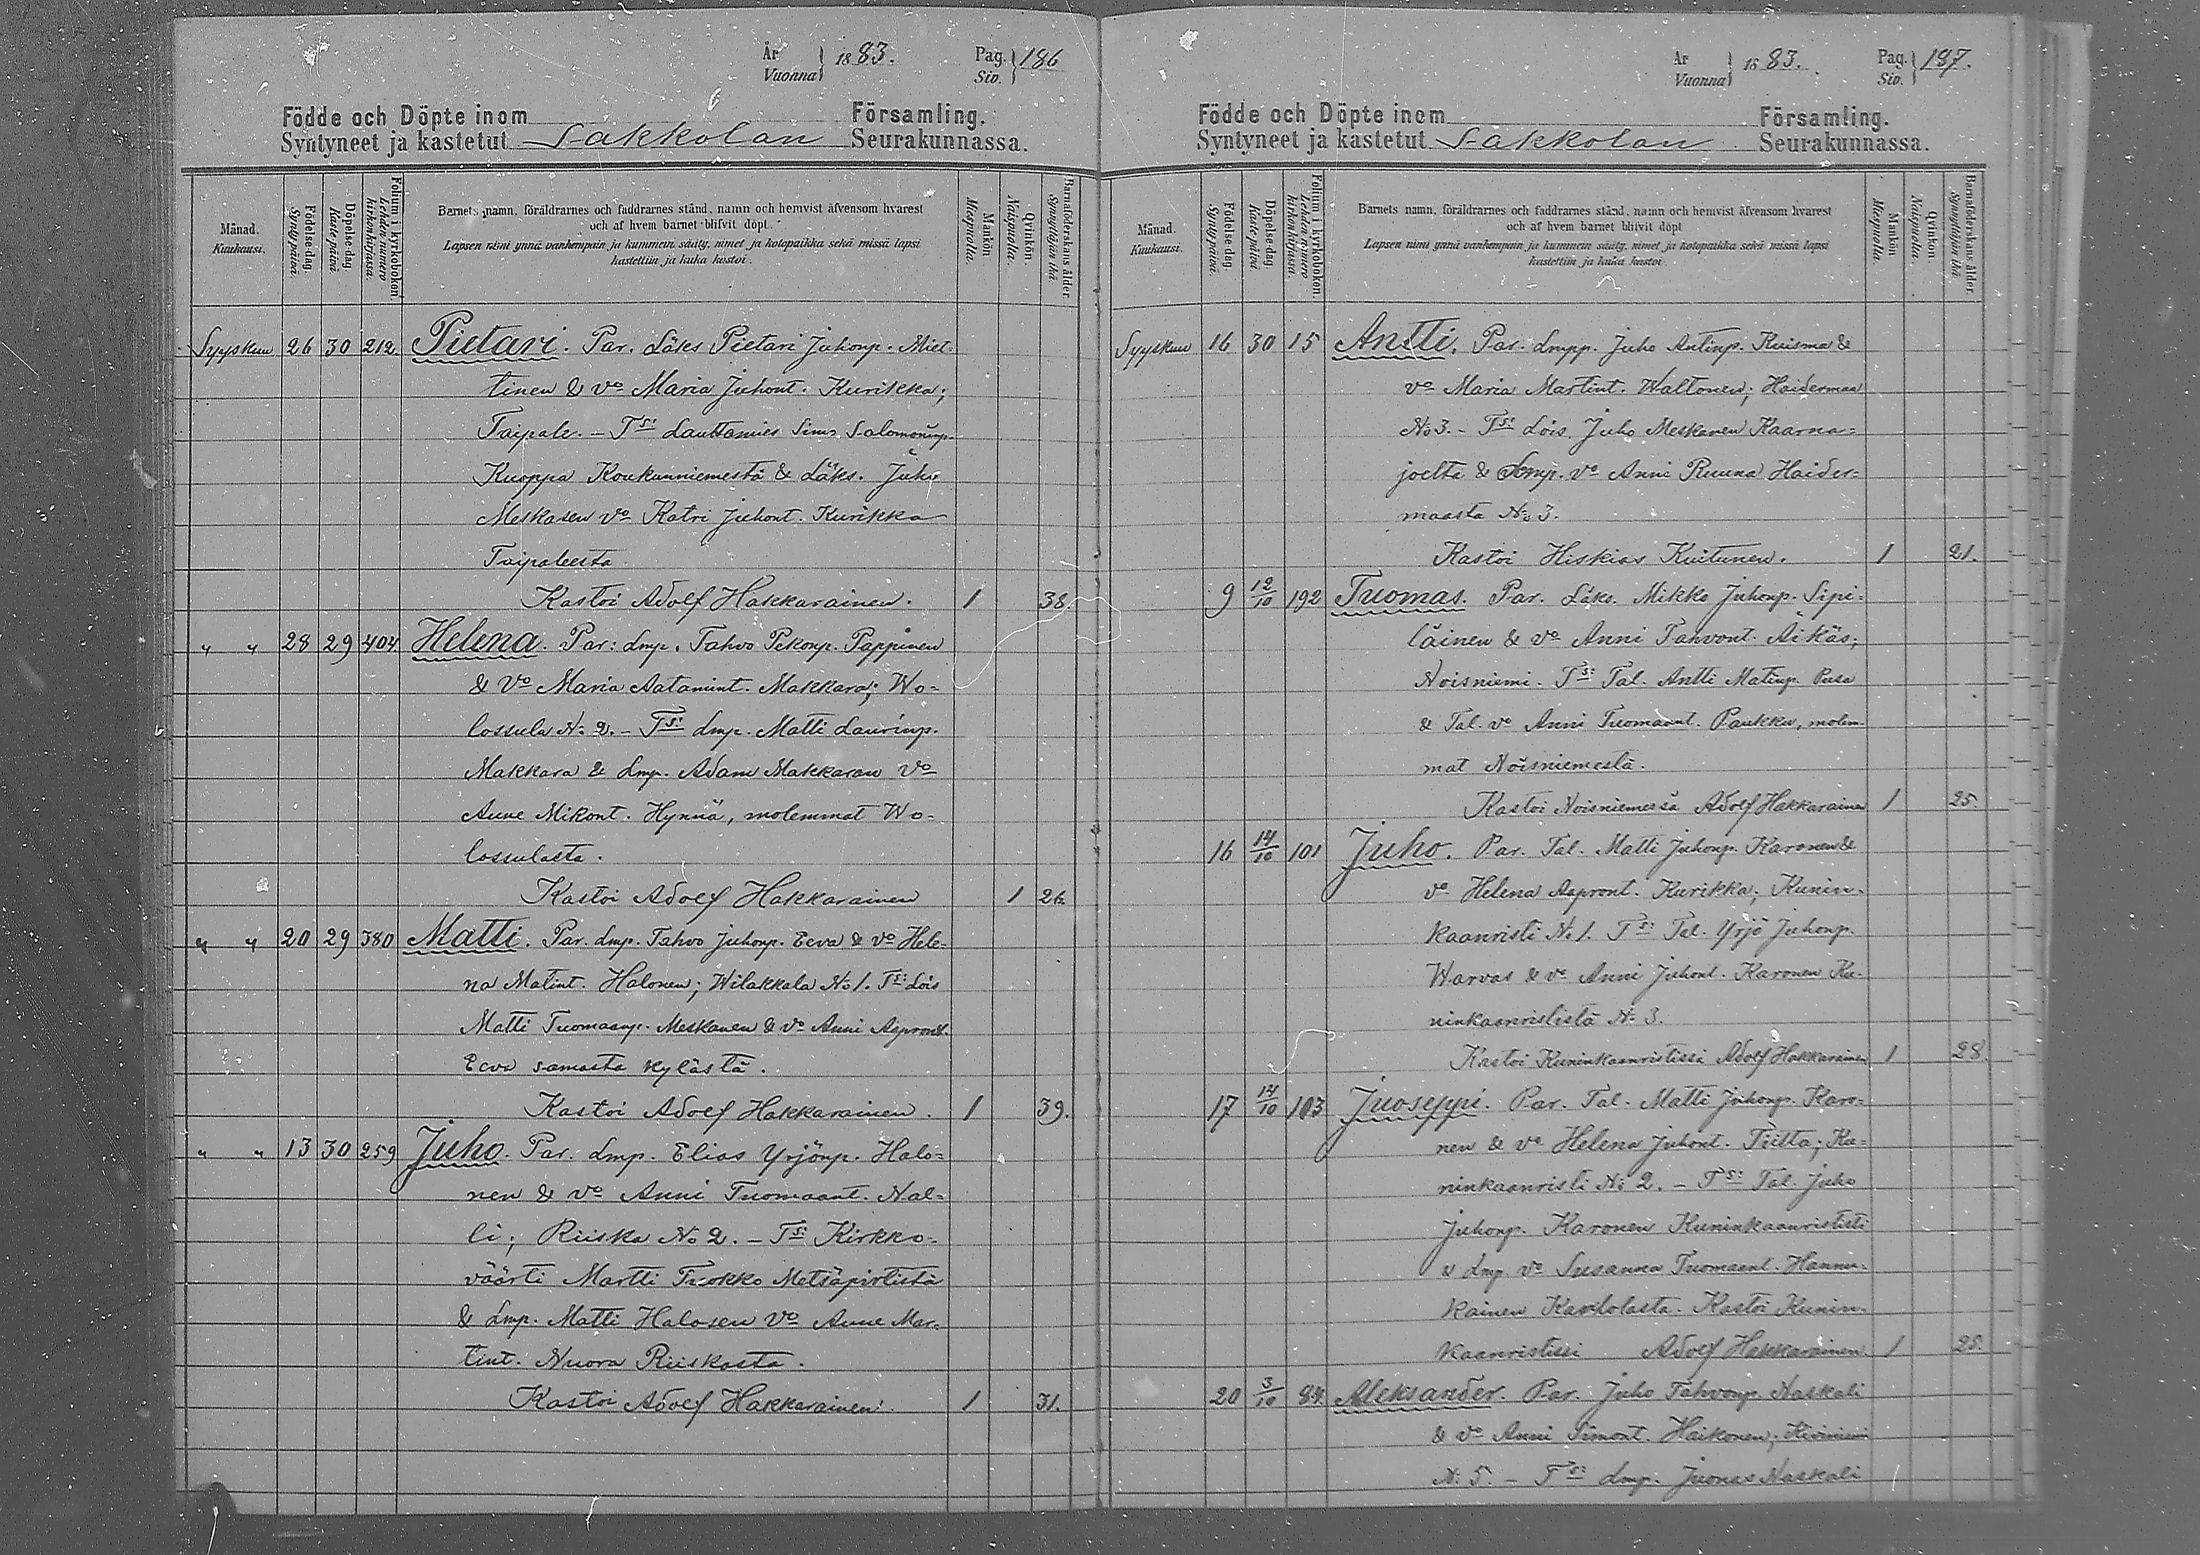 År Vuonna 1883. Pag. Siv. 186
Födde och Döpte inom Församling.
Syntyneet ja kastetut Sakkolan Seurakunnassa.
Månad. Kuukausi.
Födelse-dag. Syntypäivä.
Döpelse-dag. Kastepäivä.
Folium i kyrkoboken. Lehden numero kirkonkirjassa.
Barnets namn, föräldrarnes och faddrarnes stånd, namn och hemvist äfvensom hvarest
och af hvem barnet blifvit döpt.
Lapsen nimi ynnä vanhempain ja kummein sääty, nimet ja kotopaikka sekä missä lapsi
kastettiin ja kuka kastoi.
Mankön. Miespuolia.
Qvinkön. Naispuolia.
Barnaföderskans ålder. Synnyttäjän ikä.
Syyskuu 26 30 212 Pietari. Par. Läks Pietari Juhonp. Miet-
tinen & vo Maria Juhont. Kurikka;
Taipale. - Tst Lauttamies Simo Salomoninp.
Kuoppa Koukunniemestä & Läks. Juho
Meskasen vo Katri Juhont. Kurikka
Taipaleesta.
Kastoi Adolf Hakkarainen. 1 38.
" " 28 29 404 Helena. Par: Lmp. Tahvo Pekonp. Pappinen
& vo Maria Aatamint. Makkara; Wo-
lossula No 2. - Tst Lmp. Matti Laurinp.
Makkara & Lmp. Adam Makkaran vo
Anne Mikont. Hynnä, molemmat Wo-
lossulasta.
Kastoi Adolf Hakkarainen 1 26.
" " 20 29 380 Matti. Par. Lmp. Tahvo Juhonp. Eeva & vo Hele-
na Matint. Halonen; Wilakkala No 1. Tst Lois
Matti Tuomaanp. Meskanen & vo Anni Aapront.
Eeva samasta kylästä.
Kastoi Adolf Hakkarainen. 1 39.
" " 13 30 259 Juho. Par. Lmp. Elias Yrjönp. Halo-
nen & vo Anni Tuomaant. Nal-
li; Riiska No 2. - Tst Kirkko-
väärti Martti Tuokko Metsäpirtistä
& Lmp. Matti Halosen vo Anne Mar-
tint. Nuora Riiskasta.
Kastoi Adolf Hakkarainen. 1 31.
År Vuonna 1883. Pag. Siv. 187.
Födde och Döpte inom Församling.
Syntyneet ja kastetut Sakkolan Seurakunnassa.
Månad. Kuukausi.
Födelse-dag. Syntypäivä.
Döpelse-dag. Kastepäivä.
Folium i kyrkoboken. Lehden numero kirkonkirjassa.
Barnets namn, föräldrarnes och faddrarnes stånd, namn och hemvist äfvensom hvarest
och af hvem barnet blifvit döpt
Lapsen nimi ynnä vanhempain ja kummein sääty, nimet ja kotopaikka sekä missä lapsi
kastettiin ja kuka kastoi.
Mankön. Miespuolia.
Qvinkön. Naispuolia.
Barnaföderskans ålder. Synnyttäjän ikä.
Syyskuu 16 30 15 Antti. Par. Lmpp. Juho Antinp. Kuisma &
vo Maria Martint. Waltonen; Haidermaa
No 3. - Tst Lois. Juho Meskanen Kaarna-
joelta & Lmp. vo Anni Ruuna Haider-
maasta No 3.
Kastoi Hiskias Kuitunen. 1 21.
9 12/10 192 Tuomas. Par. Läks. Mikko Juhonp. Sipi-
läinen & vo Anni Tahvont. Äikäs;
Noisniemi. Tst Tal. Antti Matinp. Pusa
& Tal. vo Anni Tuomaant. Paukku, molem-
mat Noisniemestä.
Kastoi Noisniemessä Adolf Hakkarainen 1 25.
16 14/10 101 Juho. Par. Tal. Matti Juhonp. Karonen &
vo Helena Aapront. Kurikka; Kunin-
kaanristi No 1. Tst Tal. Yrjö Juhonp.
Warvas & vo Anni Juhont. Karonen Ku-
ninkaanrististä No 3.
Kastoi Kuninkaanristissä Adolf Hakkarainen 1 28.
17 14/10 103 Juoseppi. Par. Tal. Matti Juhonp. Karo-
nen & vo Helena Juhont. Tiitta; Ku-
ninkaanristi No 2. - Tst Tal. Juho
Juhonp. Karonen Kuninkaanrististi
& Lmp. vo Susanna Tuomaant. Hannu-
kainen Karholasta. Kastoi Kunin-
kaanristissi Adolf Hakkarainen. 1 25.
20 3/10 84 Aleksander. Par. Juho Tahvonp. Naskali
& vo Anni Simont. Haikonen; Kiviniemi
No 5. - Tst Lmp. Juonas Naskali